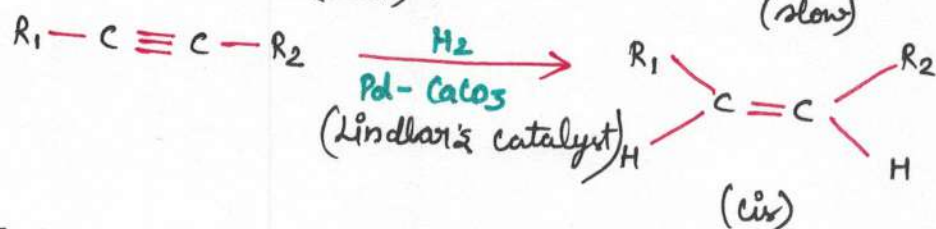 (slow)
R₁ — C ≡ C — R₂
H₂
Pd - CaCO₃
(Lindlar's catalyst)
R₁ R₂
C = C
H H
(cis)